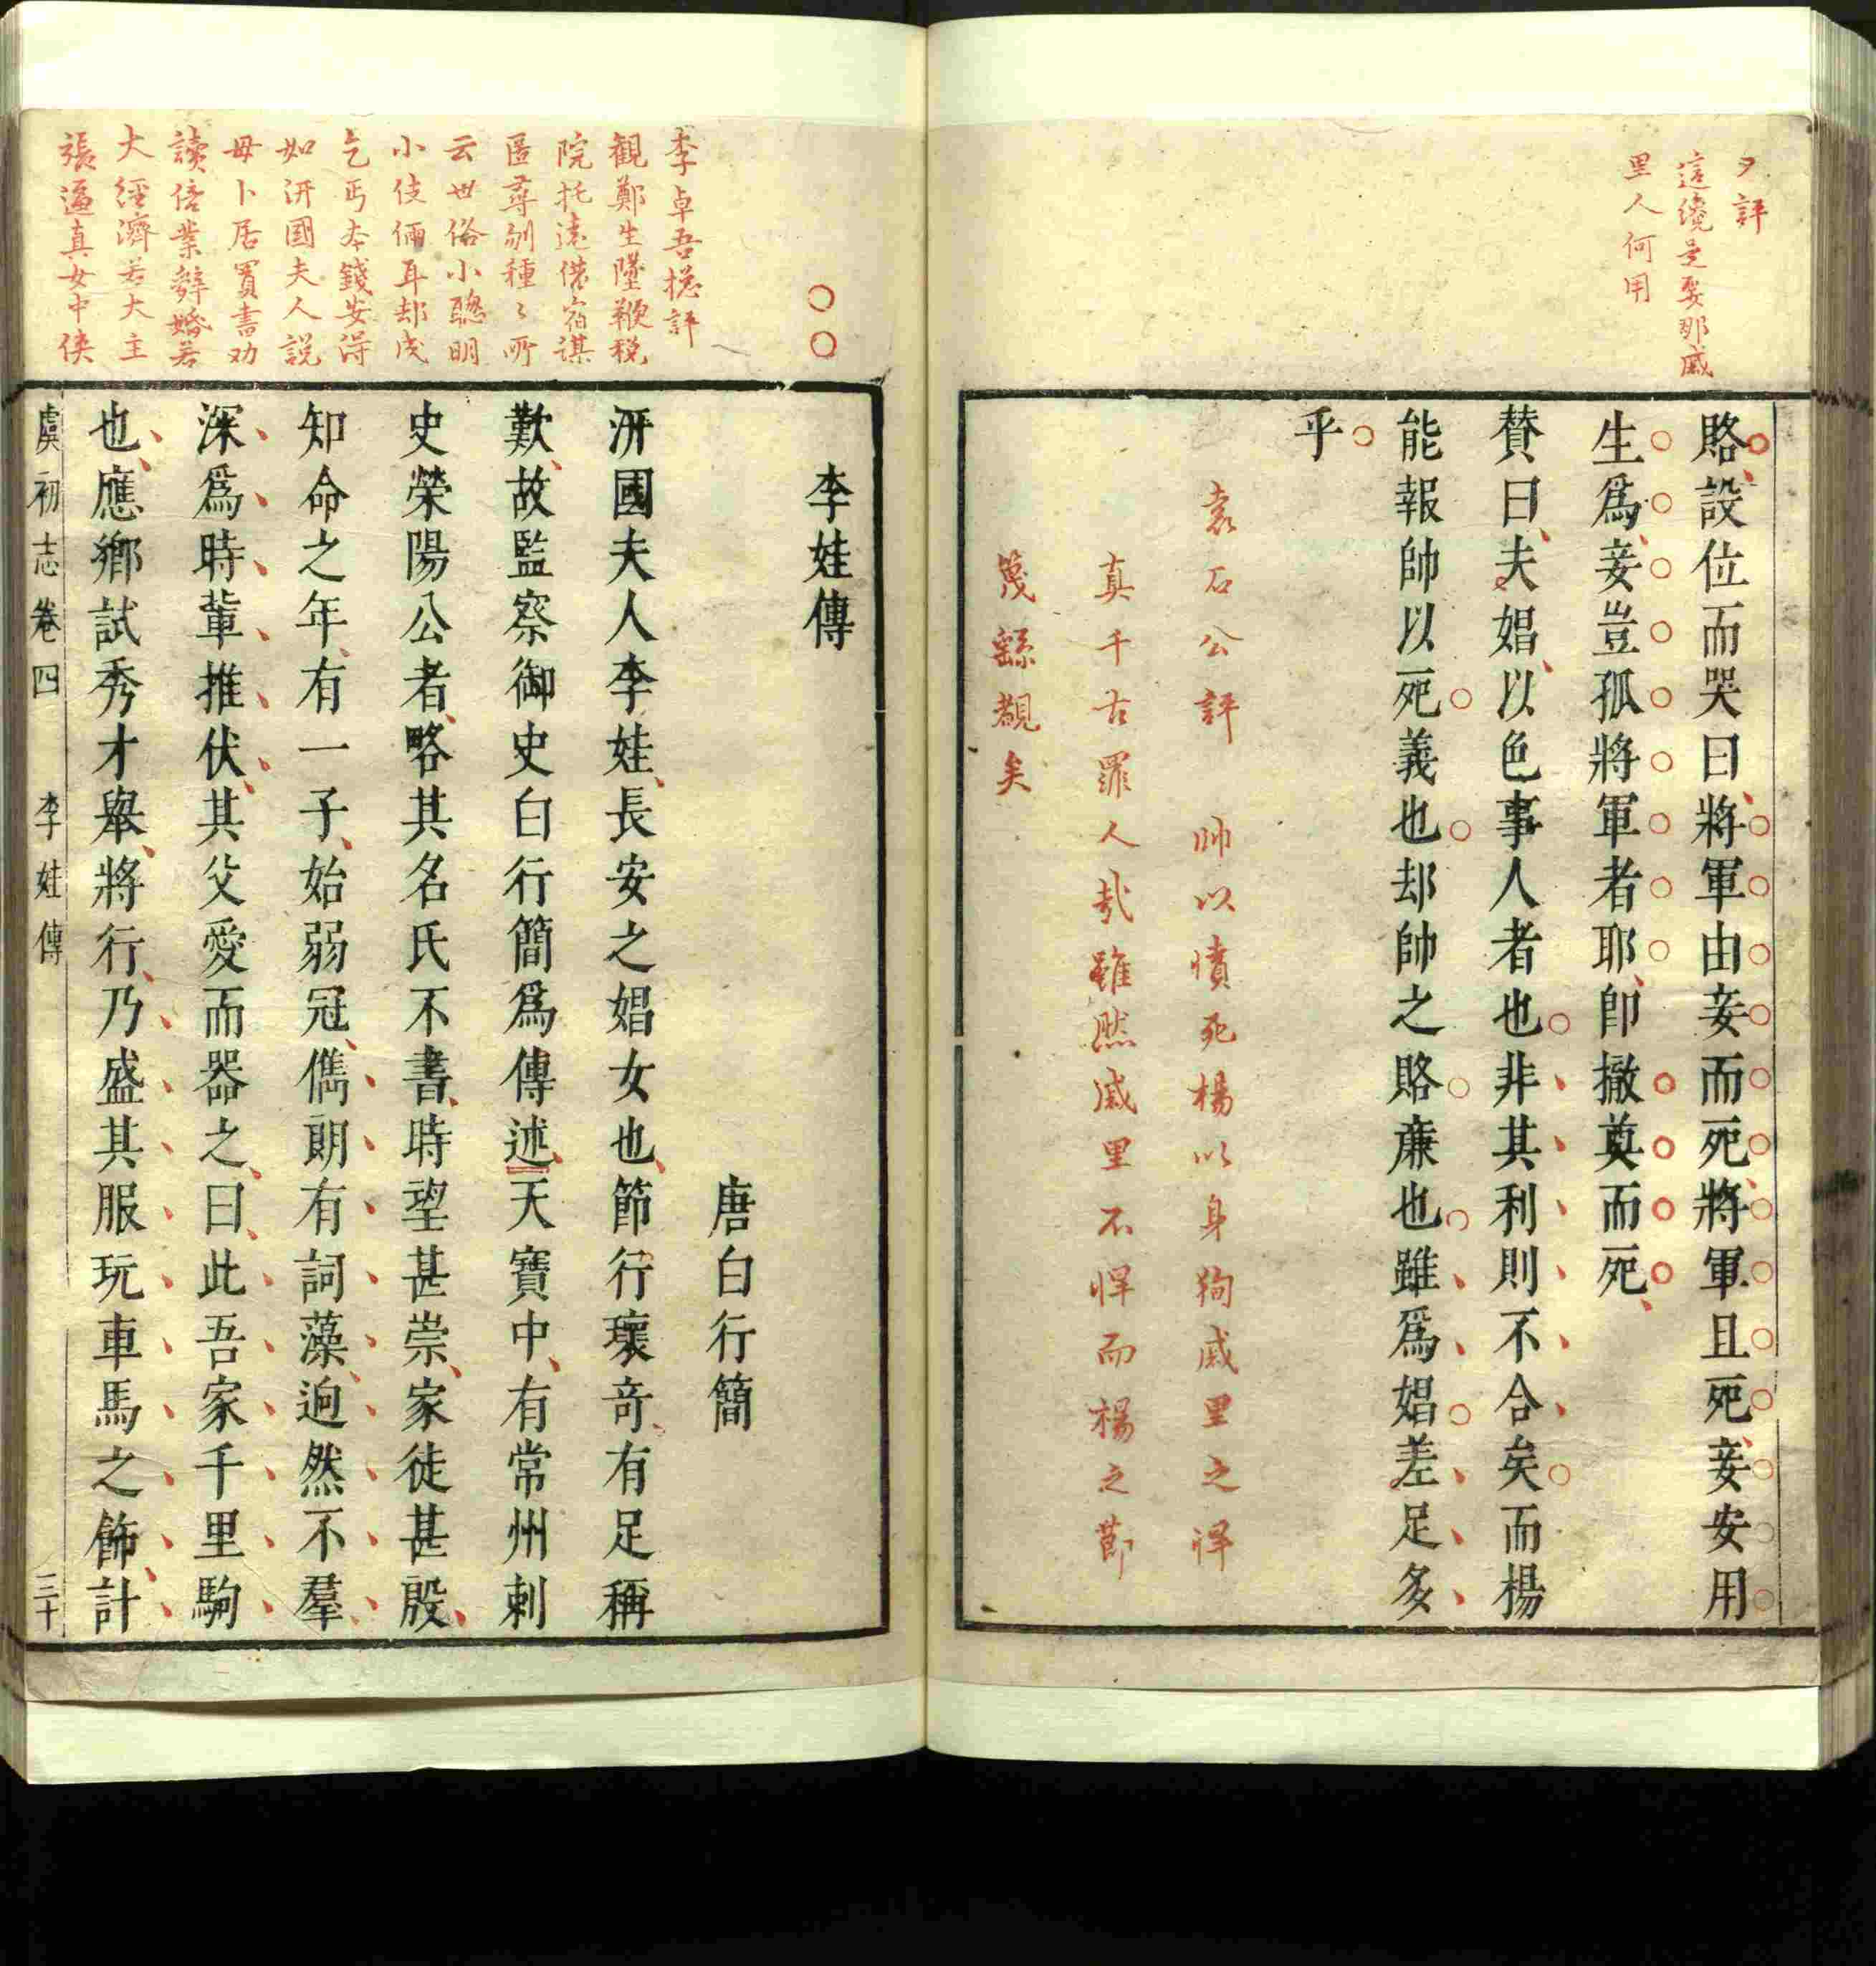 夕評
這纔是要那戚
里人何用
賂設位而哭曰將軍由妾而死將軍且死妾安用
生爲妾豈孤將軍者耶卽撤奠而死
贊曰夫娼以色事人者也非其利則不合矣而楊
能報帥以死義也却帥之賂廉也雖爲娼差足多
乎
袁石公評 帥以憤死楊以身狥戚里之悍
真千古罪人哉雖然戚里不悍而楊之節
篾繇覩矣
李娃傳
唐白行簡
汧國夫人李娃長安之娼女也節行瓌奇有足稱
歎故監察御史白行簡爲傳述天寶中有常州刺
史滎陽公者略其名氏不書時望甚崇家徒甚殷
知命之年有一子始弱冠儁朗有詞藻逈然不羣
深爲時輩推伏其父愛而器之曰此吾家千里駒
也應鄉試秀才舉將行乃盛其服玩車馬之飾計
李卓吾揔評
觀鄭生墜鞭稅
院托遠借宿謀
匿尋刎種〻所
云世俗小聰明
小伎倆耳却成
乞丐本錢安得
如汧國夫人說
母卜居買書劝
讀倍業辭婚若
大經濟若大主
張逼真女中俠
虞初志 卷四 李娃傳 三十